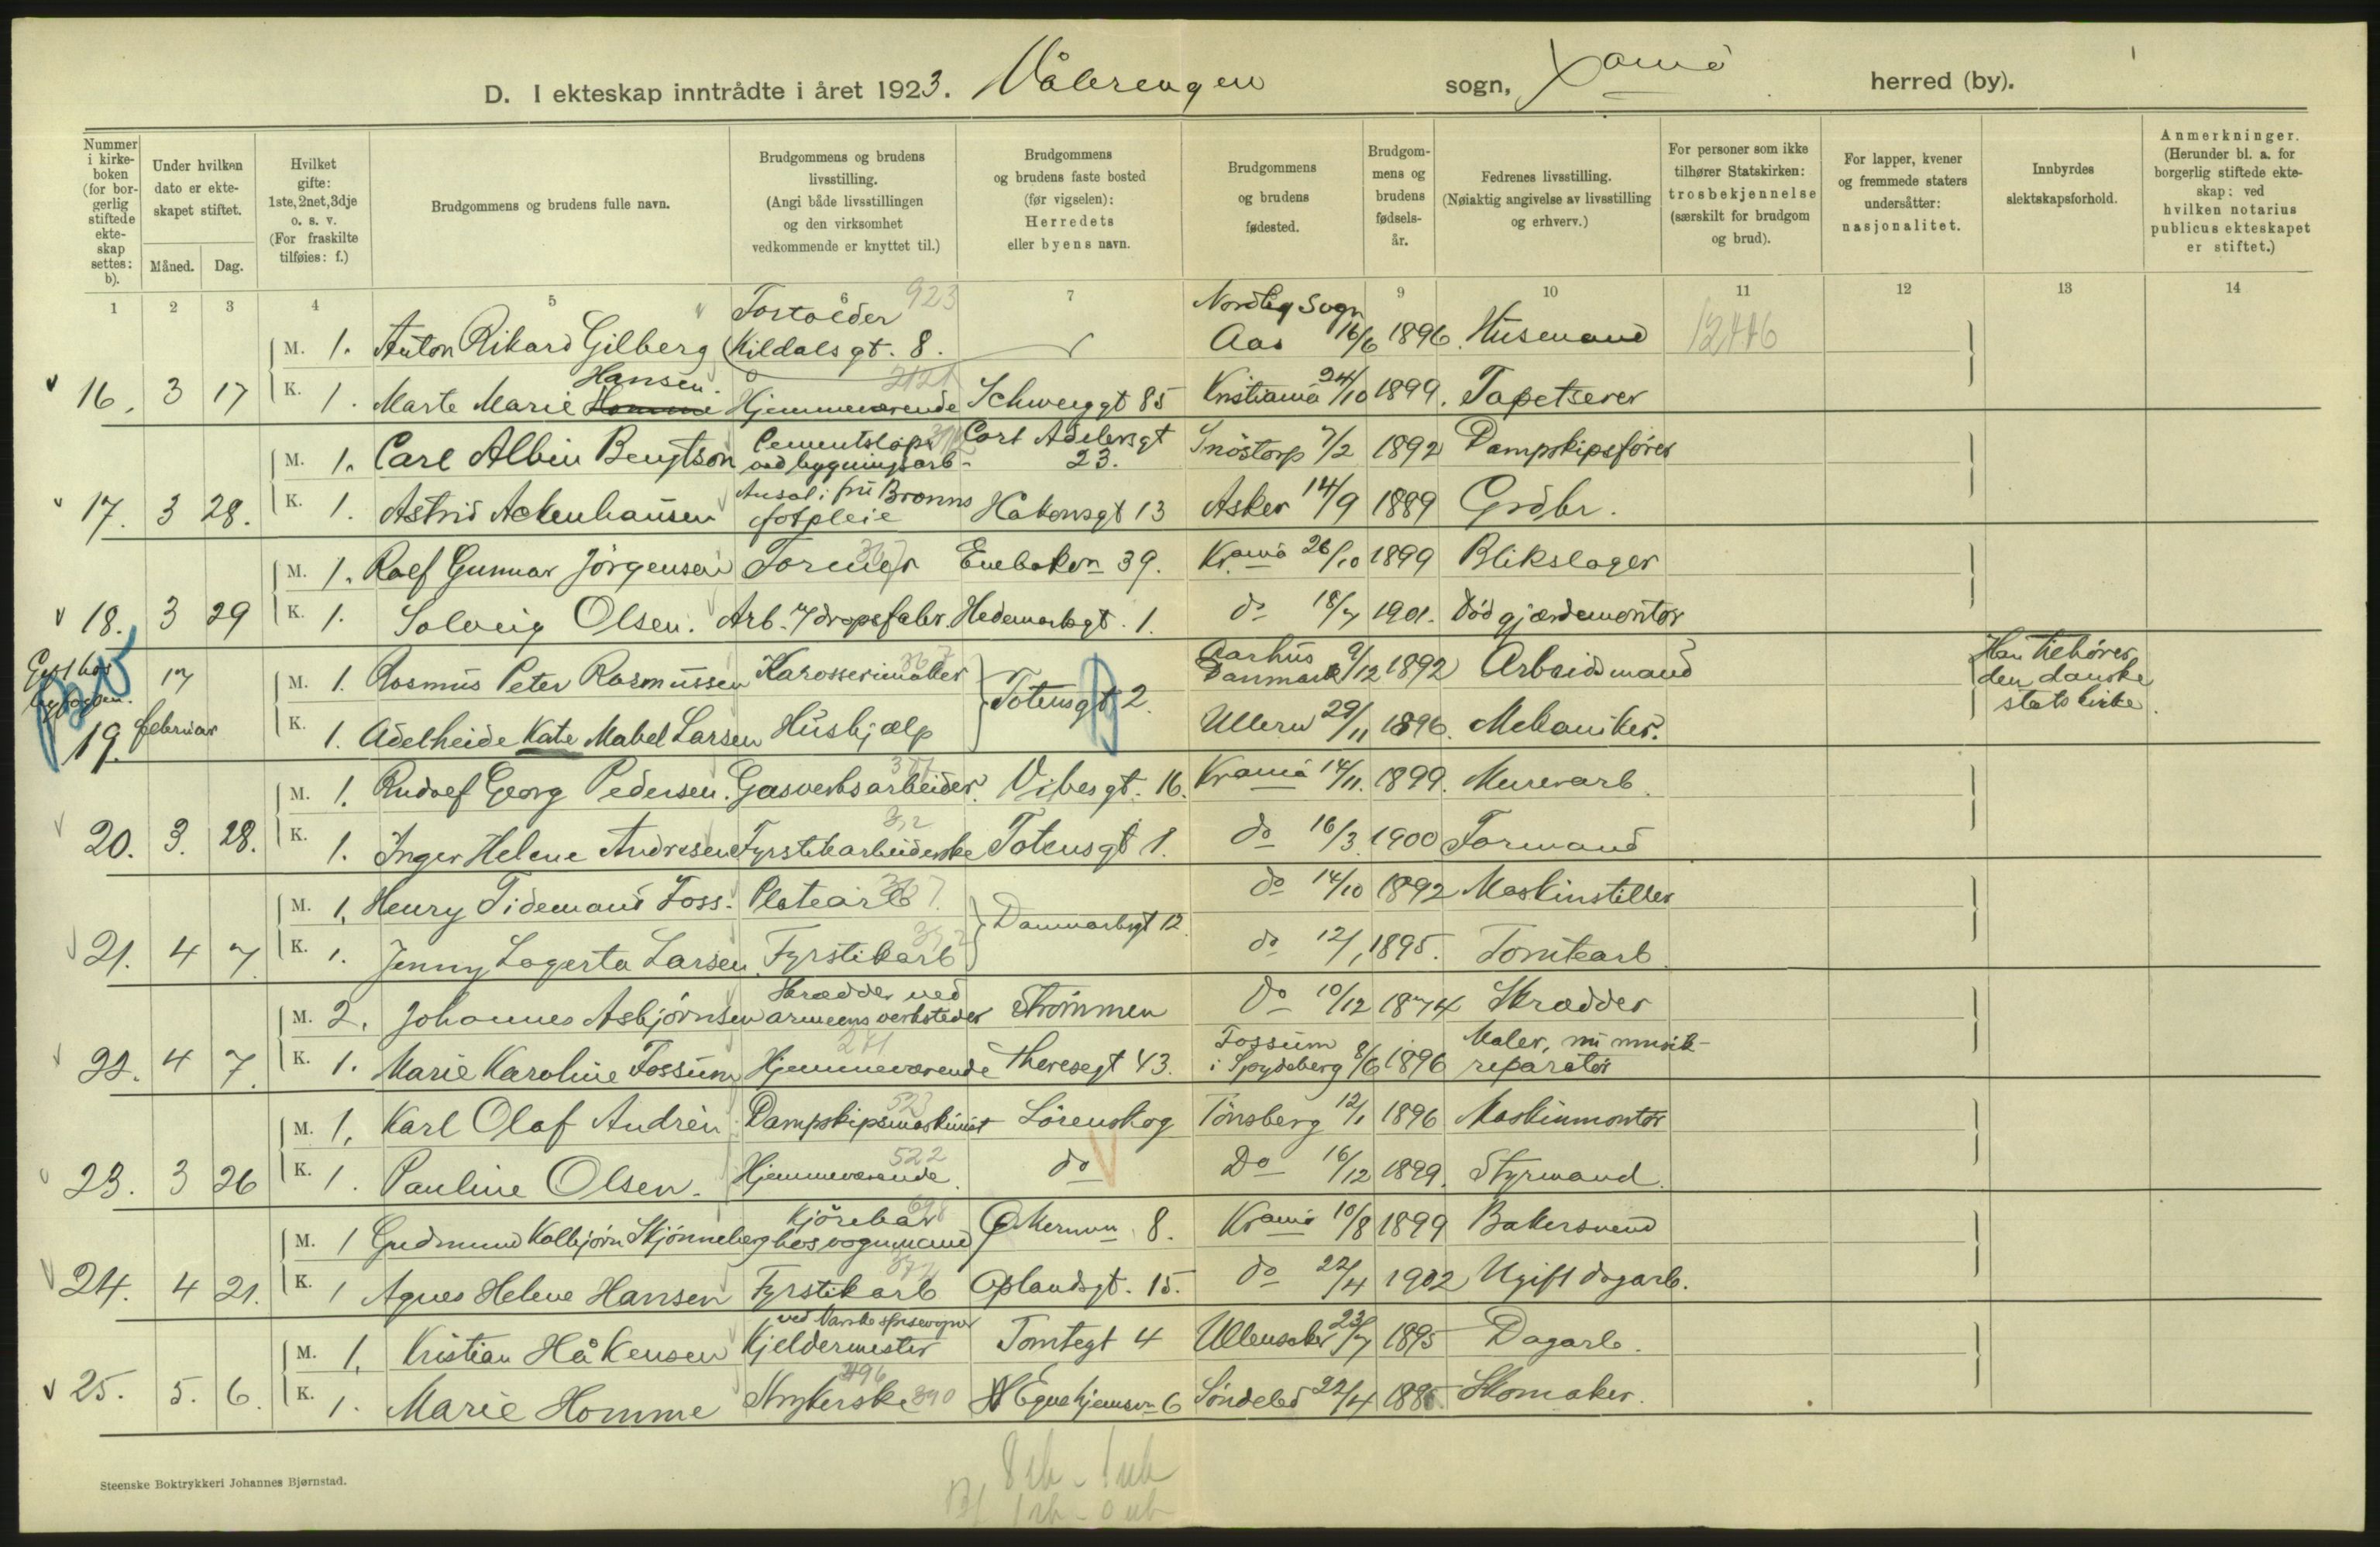 D. I ekteskap inntrådte i året 1923. Vålerengen sogn, Xania herred (by).
Nummer i kirke-boken (for bor-gerlig stiftede ekte-skap settes: b).
Under hvilken dato er ekte-skapet stiftet.
Måned. Dag.
Hvilket gifte: 1ste, 2net, 3dje o. s. v. (For fraskilte tilføies: f.)
Brudgommens og brudens fulle navn.
Brudgommens og brudens livsstilling. (Angi både livsstillingen og den virksomhet vedkommende er knyttet til.)
Brudgommens og brudens faste bosted (før vigselen): Herredets eller byens navn.
Brudgommens og brudens fødested.
Brudgom-mens og brudens fødsels-år.
Fedrenes livsstilling. (Nøiaktig angivelse av livsstilling og erhverv.)
For personer som ikke tilhører Statskirken: trosbekjennelse (særskilt for brudgom og brud).
For lapper, kvener og fremmede staters undersåtter: nasjonalitet.
Innbyrdes slektskapsforhold.
Anmerkninger. (Herunder bl. a. for borgerlig stiftede ekte-skap: ved hvilken notarius publicus ekteskapet er stiftet.)
1 2 3 4 5 6 7 9 10 11 12 13 14
923
M. 1. Anton Rikard Gilberg Kildalsgt. 8. Nordby Sogn Aas 16/6 1896 Husemand 12446
16. 3 17 K. 1. Marte Marie Homme Hansen Hjemmeværende Schweiggt 85 Kristiania 24/10 1899. Tapetserer
M. 1. Carl Albin Bengtson ved bygningsarb. Cort Adelersgt 23. Snöstorp 7/2 1892 Dampskipsfører
17. 3 28. K. 1. Astrid Ackenhausen Ansat i fru Bronns fotpleie Håkonsgt 13 Asker 14/9 1889 Grdbr.
M. 1. Rolf Gunnar Jörgensen Former 367 Enebakvn 39. Kr.ania 26/10 1899 Blikslager
18. 3 29 K. 1. Solveig Olsen. Arb. Hedemarksgt. 1. do 18/7 1901. Död gjærdemontör
M. 1. Rasmus Peter Rasmussen Karosserimaker 367 Totensgt 2. Aarhus Danmark 9/12 1892 Arbeidsmand Han tilhører den danske statskirke.
19. 17 februar K. 1. Adelheide Kate Mabel Larsen Hushjælp Ullern 29/11 1896. Mekaniker.
M. 1. Rudolf Georg Pedersen. Gasverksarbeider. Vibesgt. 16. Kr.ania 14/11. 1899. Murerarb.
20. 3. 28. K. 1. Inger Helene Andresen Fyrstikarbeiderske Totensgt 1. do 16/3 1900 Formand
M. 1. Henry Tidemand Foss. Platearb 367. Danmarksgt 12. do 14/10 1892 Maskinstiller
21. 4 7. K. 1. Jenny Lagerta Larsen. Fyrstikarb do 12/1 1895. Tomtearb.
M. 2. Johannes Asbjörnsen Skrædder ved armeens verksteder Strömmen Do 10/12 1874 Skrædder
22. 4 7. K. 1. Marie Karoline Fossum Hjemmeværende Theresegt 43. Fossum i Spydeberg 8/6 1896 Maler, nu musik-reparatör
M. 1. Karl Olaf Andrèn Dampskipsmaskinist 523 Lörenskog Tönsberg 12/1 1896 Maskinmontör
23. 3 26 K. 1. Pauline Olsen. Hjemmeværende. 522 do Do 16/12 1899. Styrmand.
M. 1 Gudmund Kolbjörn Skjönneberg Kjörekar hos vognmand 8. Kr.ania 10/8 1899 Bakersvend
24. 4 21. K. 1 Agnes Helene Hansen Fyrstikarb Oplandsgt. 15. do 22/4 1902 Ugift dagarb.
M. 1. Kristian Håkensen ved Norske spisevogner Kjeldermester Tomtegt 4 Ullensaker 23/7 1895 Dagarb.
25. 5. 6. K. 1. Marie Homme Strykerske 390 6 Söndeled 22/4 Skomaker.
Steenske Boktrykkeri Johannes Bjørnstad.